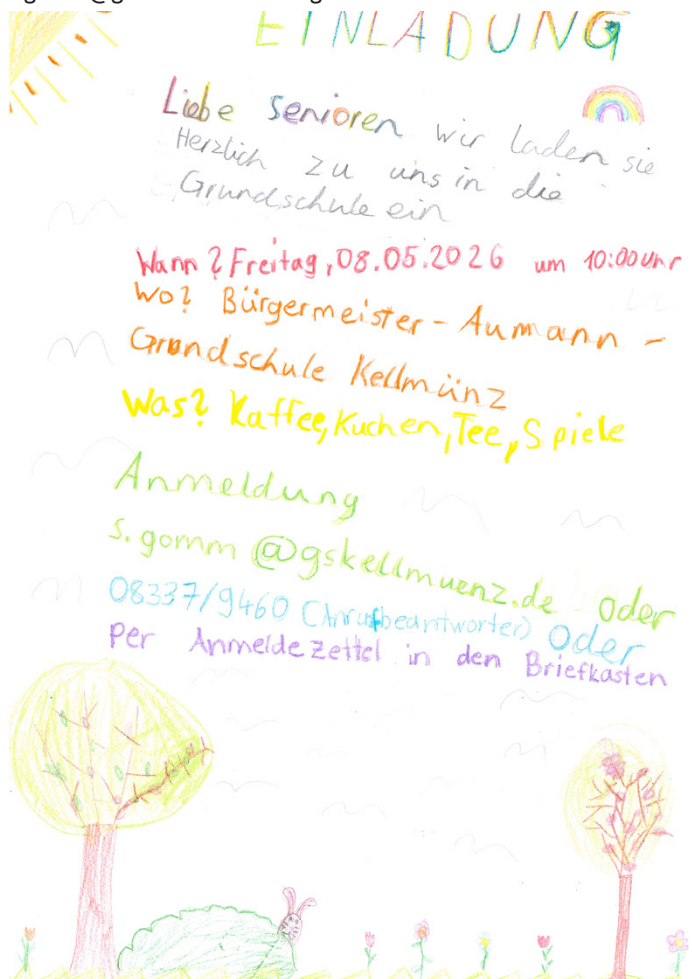 EINLADUNG
Liebe Senioren wir laden sie
Herzlich zu uns in die
Grundschule ein
Wann? Freitag, 08.05.2026 um 10:00 uhr
Wo? Bürgermeister - Aumann -
Grundschule Kellmünz
Was? Kaffee, Kuchen, Tee, Spiele
Anmeldung
s.gomm@gskellmuenz.de oder
08337/9460 (Anrufbeantworter) oder
per Anmeldezettel in den Briefkasten